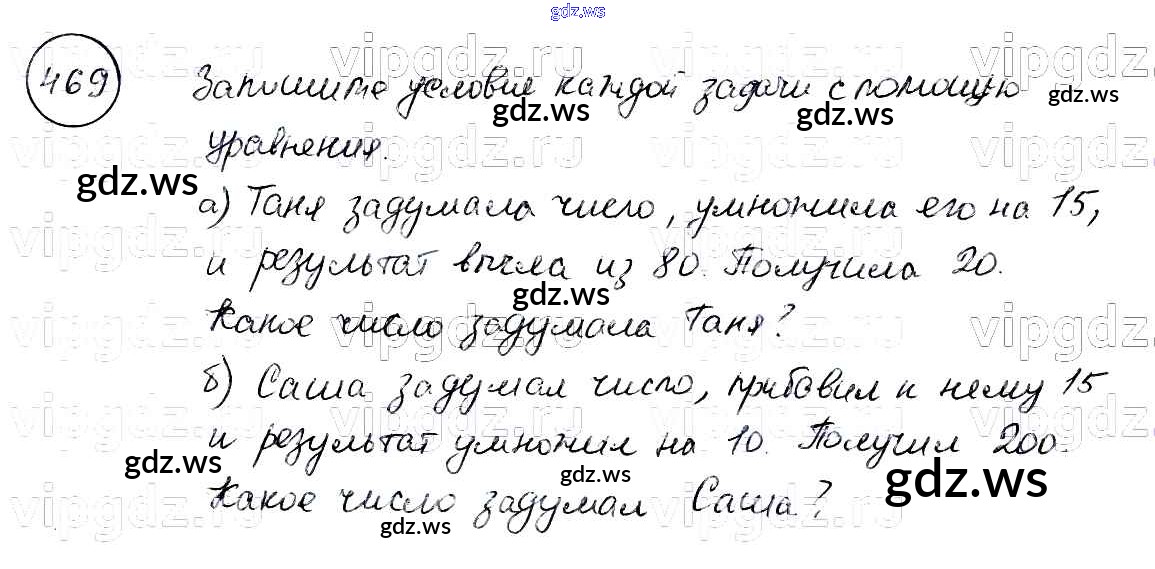 gdz.ws
469 Запишите условия каждой задачи с помощью
уравнения.
а) Таня задумала число, умножила его на 15,
и результат вычла из 80. Получила 20.
Какое число задумала Таня?
б) Саша задумал число, прибавил к нему 15
и результат умножил на 10. Получил 200.
Какое число задумал Саша?